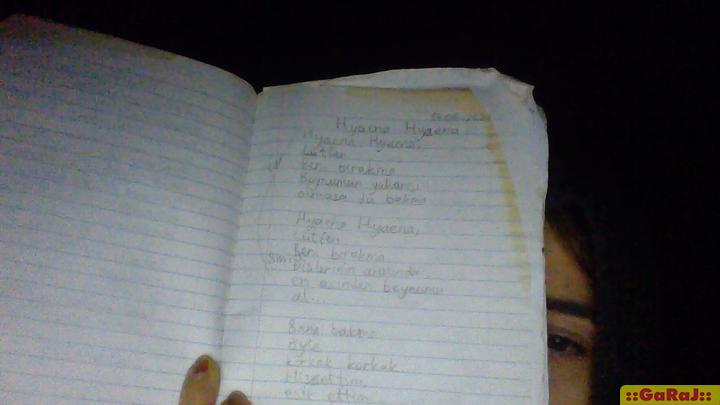 Hyaena Hyaena
Hyaena Hyaena,
Lütfen
Beni bırakma
Boynumun yukarısı
olmasa da bakma
Hyaena Hyaena,
Lütfen
Beni bırakma
Dişlerinin arasında
en azından boynumu
al...
Bana bakma
öyle
korkak korkak
Hissettim
ettim
::GaRaJ::